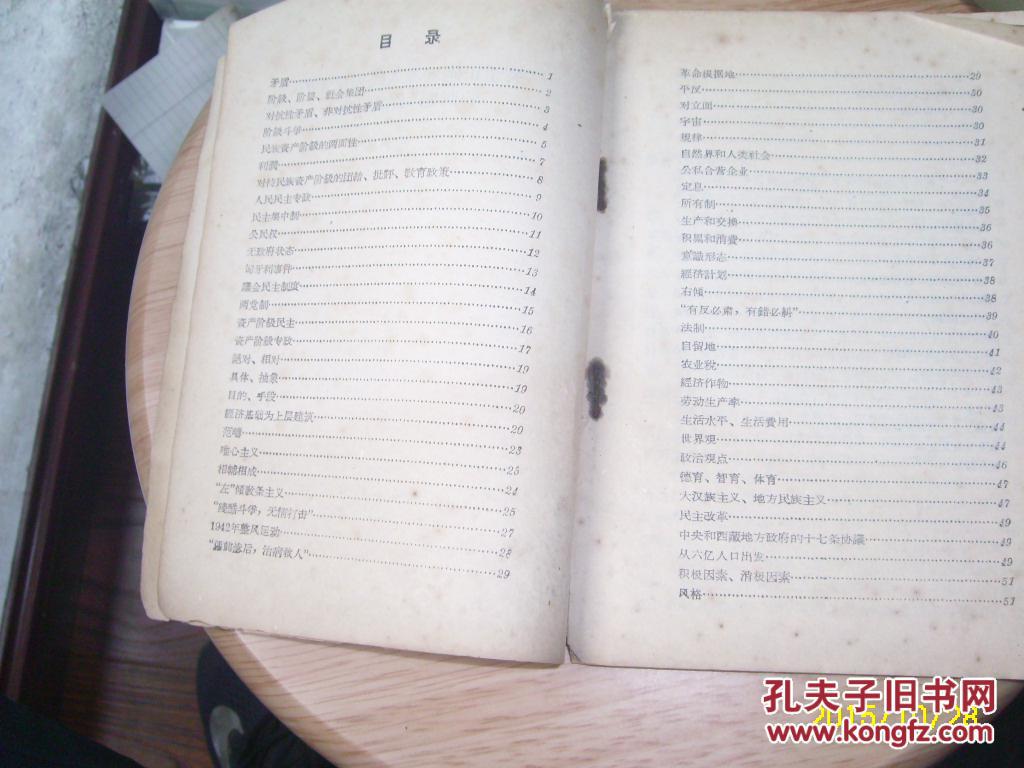 目 录
矛盾……1
阶級、阶层、社会集团……2
对抗性矛盾、非对抗性矛盾……3
阶級斗爭……4
民族資产阶級的两面性……5
利潤……7
对待民族資产阶級的团結、批評、敎育政策……8
人民民主专政……9
民主集中制……10
公民权……11
无政府状态……12
匈牙利事件……13
議会民主制度……14
两党制……15
資产阶級民主……16
資产阶級专政……17
絕对、相对……19
具体、抽象……19
目的、手段……20
經济基础为上层建筑……20
范疇……23
唯心主义……25
相輔相成……24
“左”傾敎条主义……25
“殘酷斗爭，无情打击”……27
1942年整风运动……28
“懲前毖后，治病救人”……29
革命根据地……29
平反……30
对立面……30
宇宙……30
規律……31
自然界和人类社会……32
公私合营企业……33
定息……34
所有制……35
生产和交換……36
积累和消費……36
意識形态……37
經济計划……38
右傾……38
“有反必肅，有錯必糾”……39
法制……40
自留地……41
农业稅……42
經济作物……43
劳动生产率……43
生活水平、生活費用……44
世界观……44
政治观点……46
德育、智育、体育……47
大汉族主义、地方民族主义……47
民主改革……49
中央和西藏地方政府的十七条协議……49
从六亿人口出发……49
积极因素、消极因素……51
风格……51
孔夫子旧书网
www.kongfz.com